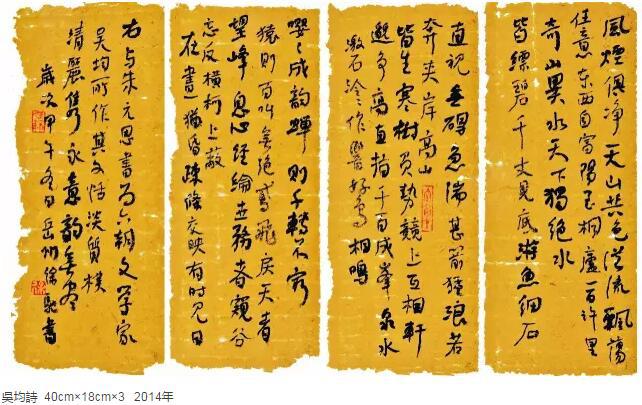 風煙俱净天山共色從流飄蕩
任意東西自富陽至桐廬一百許里
奇山異水天下獨絕水
皆縹碧千丈見底游魚細石
直視無礙急湍甚箭猛浪若
奔夾岸高山
皆生寒樹負勢競上互相軒
邈争高直指千百成峯泉水
激石泠々作響好鳥相鳴
嚶々成韵蟬則千轉不窮
猿則百叫無絕鳶飛戾天者
望峰息心經綸世務者窺谷
忘反横柯上蔽
在晝猶昏疎條交映有時見日
右与朱元思書为六朝文学家
吴均所作其文恬淡質樸
清麗隽永意韵無盡
歲次甲午冬日岳州徐書
吳均詩 40cm×18cm×3 2014年